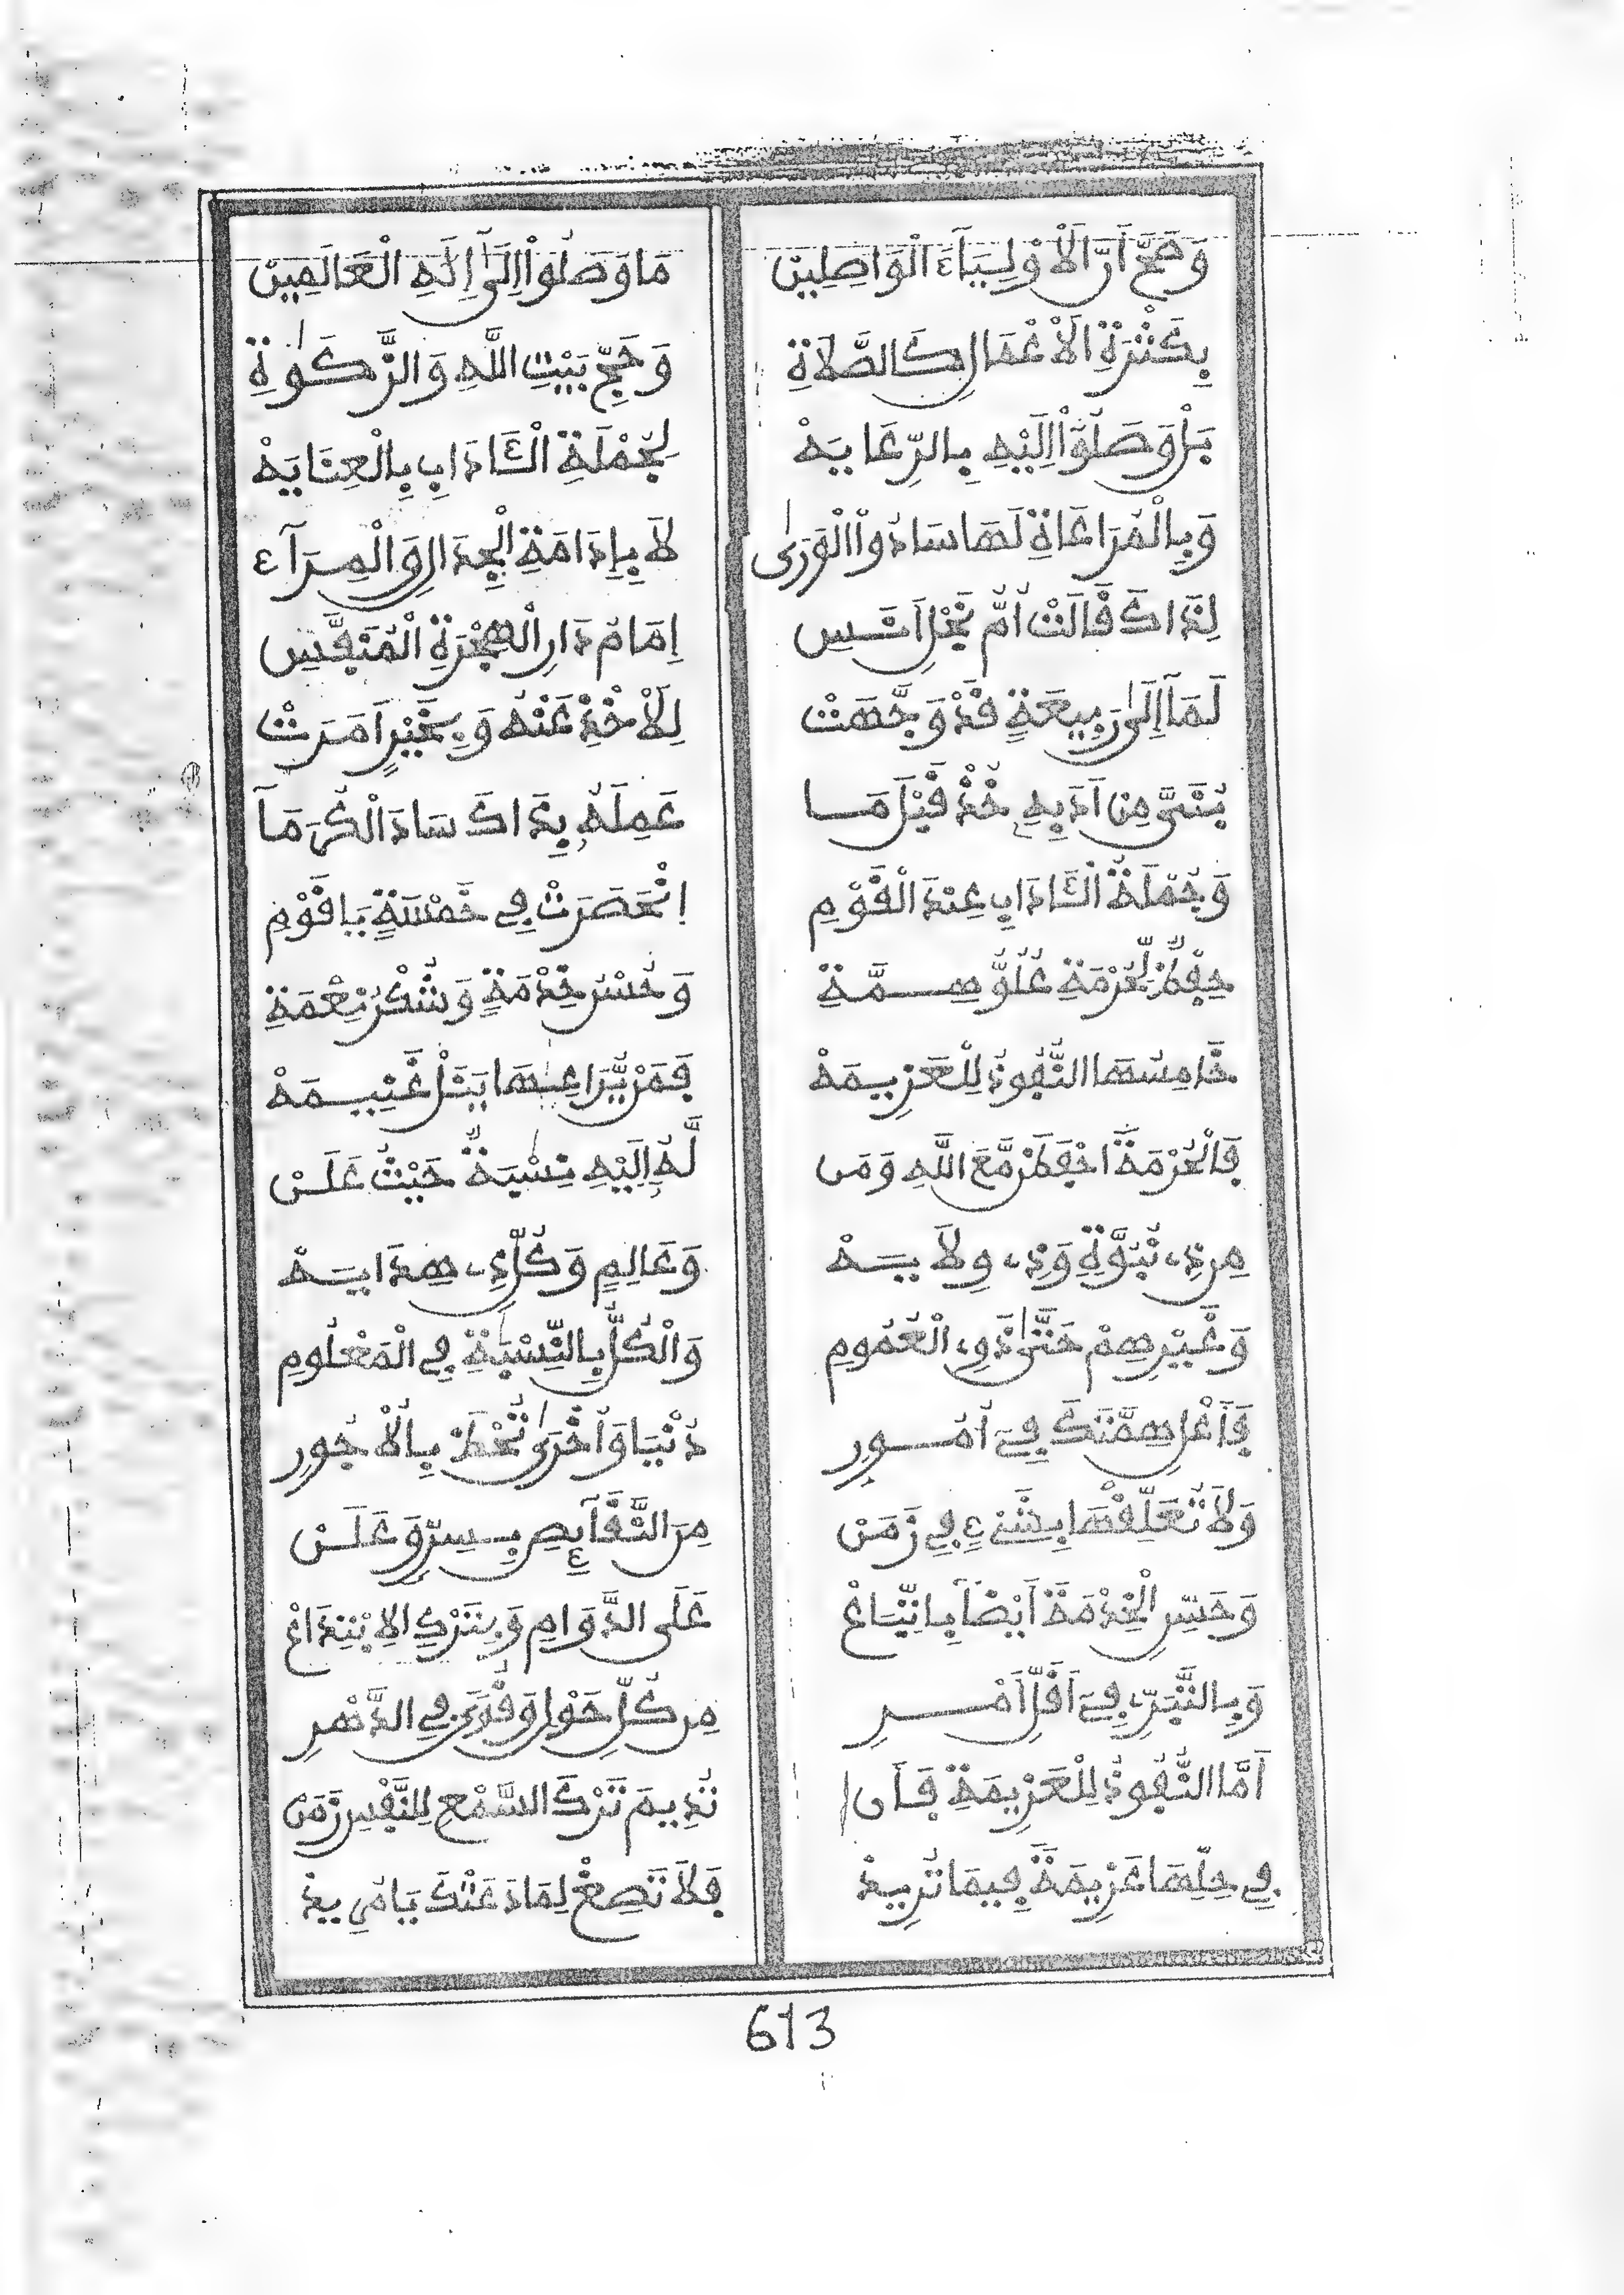 وَصَحَّ أَنَّ الَاوْلِيَآءَ الْوَاصِلِينْ مَا وَصَلُواْ إِلَىٰٓ إِلَٰهِ الْعَالَمِينْ
بِكَثْرَةِ الَاعْمَالِ كَالصَّلَاةِ وَحَجِّ بَيْتِ اللَّهِ وَالزَّكَوٰةِ
بَلْ وَصَلُوٓاْ إِلَيْهِ بِالرِّعَايَهْ لِجُمْلَةِ الْـَٔادَابِ بِالْعِنَايَهْ
وَبِالْمُرَاعَاةِ لَهَا سَادُواْ الْوَرَىٰ لَا بِإِدَامَةِ الْجِدَالِ وَالْمِرَآء
لِذَاكَ قَالَتْ أُمُّ نَجْلِ أَنَسِ إِمَامُ دَارِ الْهِجْرَةِ الْمُنَفِّسِ
لَمَّآ إِلَىٰ رَبِيعَةٍ قَدْ وَجَّهَتْ لِلَاخْذِ عَنْهُ وَبِخَيْرٍ أَمَرَتْ
بُنَيَّ مِنْ أَدَبِهِ خُذْ قَبْلَ مَا عَمِلَهُ بِذَاكَ سَادَ الْكُرَمَآ
وَجُمْلَةُ الْـَٔادَابِ عِنْدَ الْقَوْمِ اِنْحَصَرَتْ فِي خَمْسَةٍ يَا قَوْمِ
حِفْظٌ لِّحُرْمَةٍ عُلُوُّ هِمَّةِ وَحُسْنُ خِدْمَةٍ وَشُكْرُ نِعْمَةِ
خَامِسُهَا النُّفُوذُ لِلْعَزِيمَهْ فَمَنْ يُّرَاعِهَا يَنَلْ غَنِيمَهْ
فَالْحُرْمَةَ احْفَظْ مَّعَ اللَّهِ وَمَن لَّهُ إِلَيْهِ نِسْبَةٌ حَيْثُ عَلَنْ
مِن ذِي نُبُوَّةٍ وَذِي وِلَايَهْ وَعَالِمٍ وَكُلِّ ذِي هِدَايَهْ
وَغَيْرِهِمْ حَتَّىٰ ذَوِي الْعُمُومِ وَالْكُلُّ بِالنِّسْبَةِ فِي الْمَعْلُومِ
فَأَعْلِ هِمَّتَكَ فِيٓ أُمُورِ دُنْيَا وَأُخْرَىٰ تُحْظَ بِالُاجُورِ
وَلَا تُعَلِّقْهَا بِشَيْءٍ فِي زَمَنْ مِنَ النَّقَآئِصِ بِسِرٍّ وَعَلَنْ
وَحَسِّنِ الْخِدْمَةَ أَيْضًا بِاتِّبَاعْ عَلَى الدَّوَامِ وَبِتَرْكِ الِابْتِدَاعْ
وَبِالتَّبَرِّي فِيٓ أَقَلِّ أَمْرِ مِن كُلِّ حَوْلٍ وَقُوًى فِي الدَّهْرِ
أَمَّا النُّفُوذُ لِلْعَزِيمَةِ فَأَن تُدِيمَ تَرْكَ السَّمْعِ لِلنَّفْسِ زَمَنْ
فِي حِلِّهَا عَزِيمَةً فِيمَا تُرِيدْ فَلَا تَصِغْ لِمَا دَعَتْكَ يَا مُرِيدْ
613